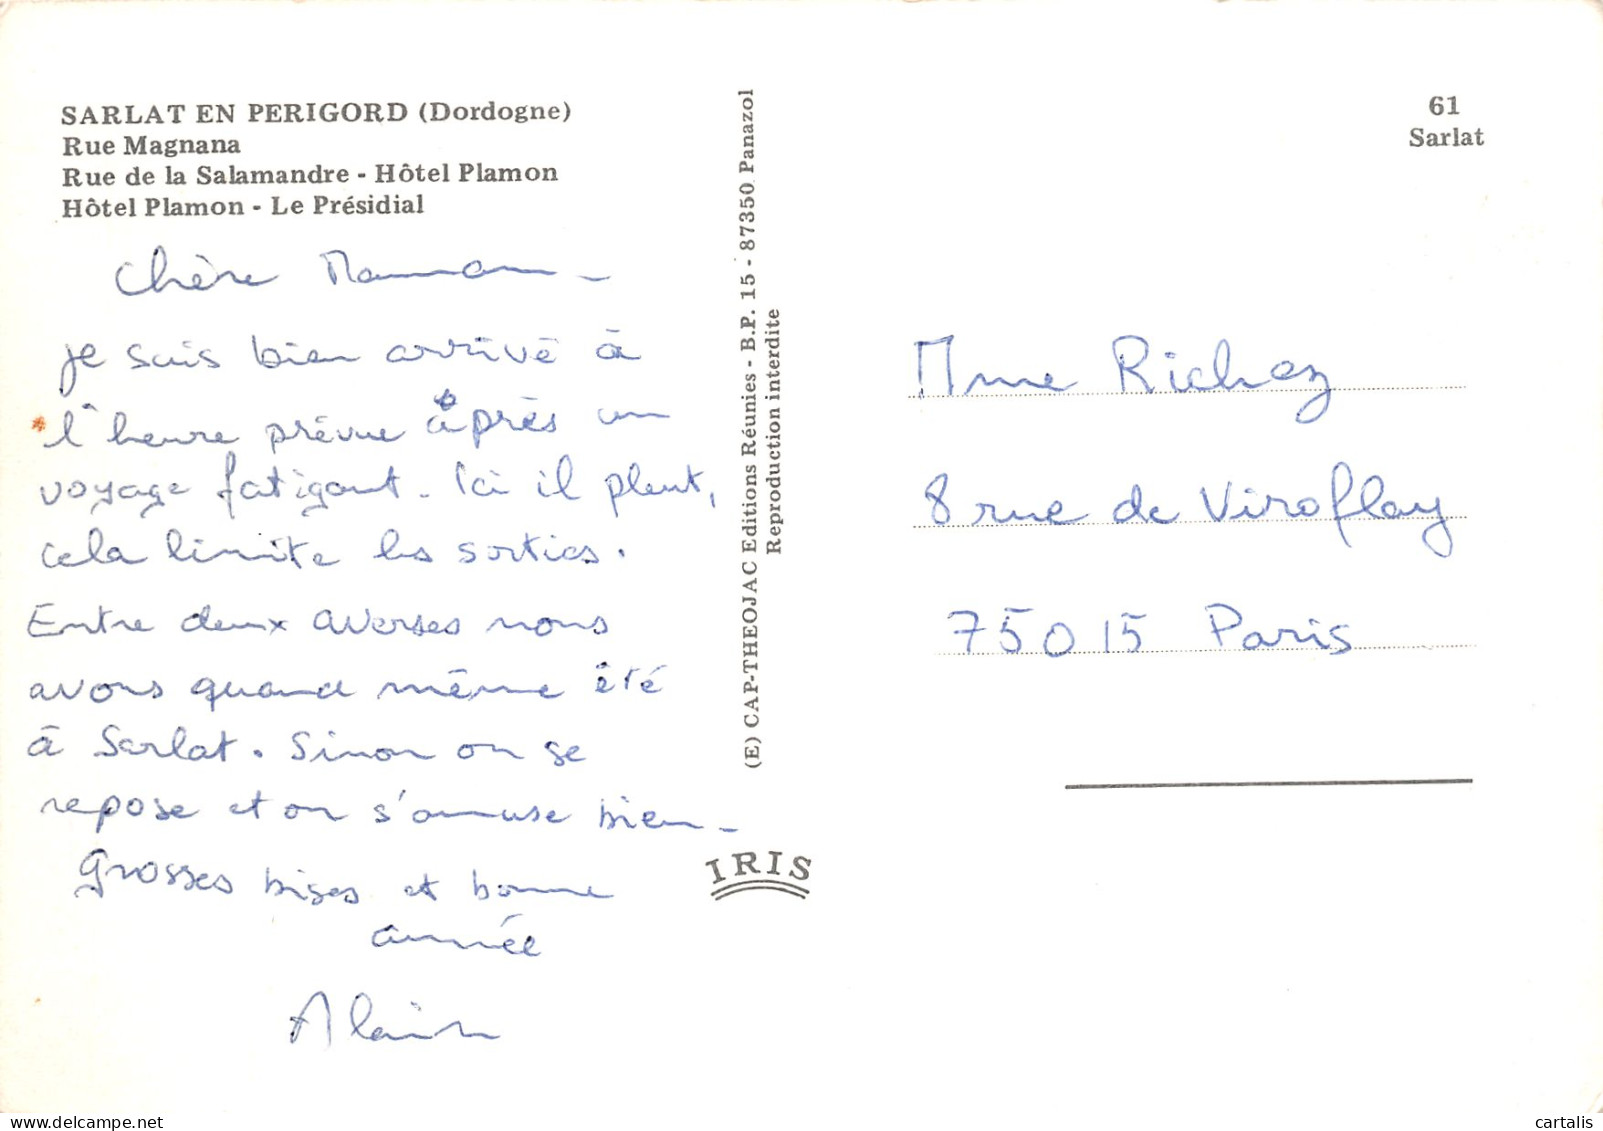 SARLAT EN PERIGORD (Dordogne)
Rue Magnana
Rue de la Salamandre - Hôtel Plamon
Hôtel Plamon - Le Présidial
Chère Maman -
je suis bien arrivé à
l'heure prévue après un
voyage fatigant. Ici il pleut,
cela limite les sorties.
Entre deux averses nous
avons quand même été
à Sarlat. Sinon on se
repose et on s'amuse bien -
Grosses bises et bonne
année
Alain
(E) CAP-THEOJAC Editions Réunies - B.P. 15 - 87350 Panazol
Reproduction interdite
IRIS
61
Sarlat
Mme Richez
8 rue de Viroflay
75015 Paris
delcampe.net
cartalis